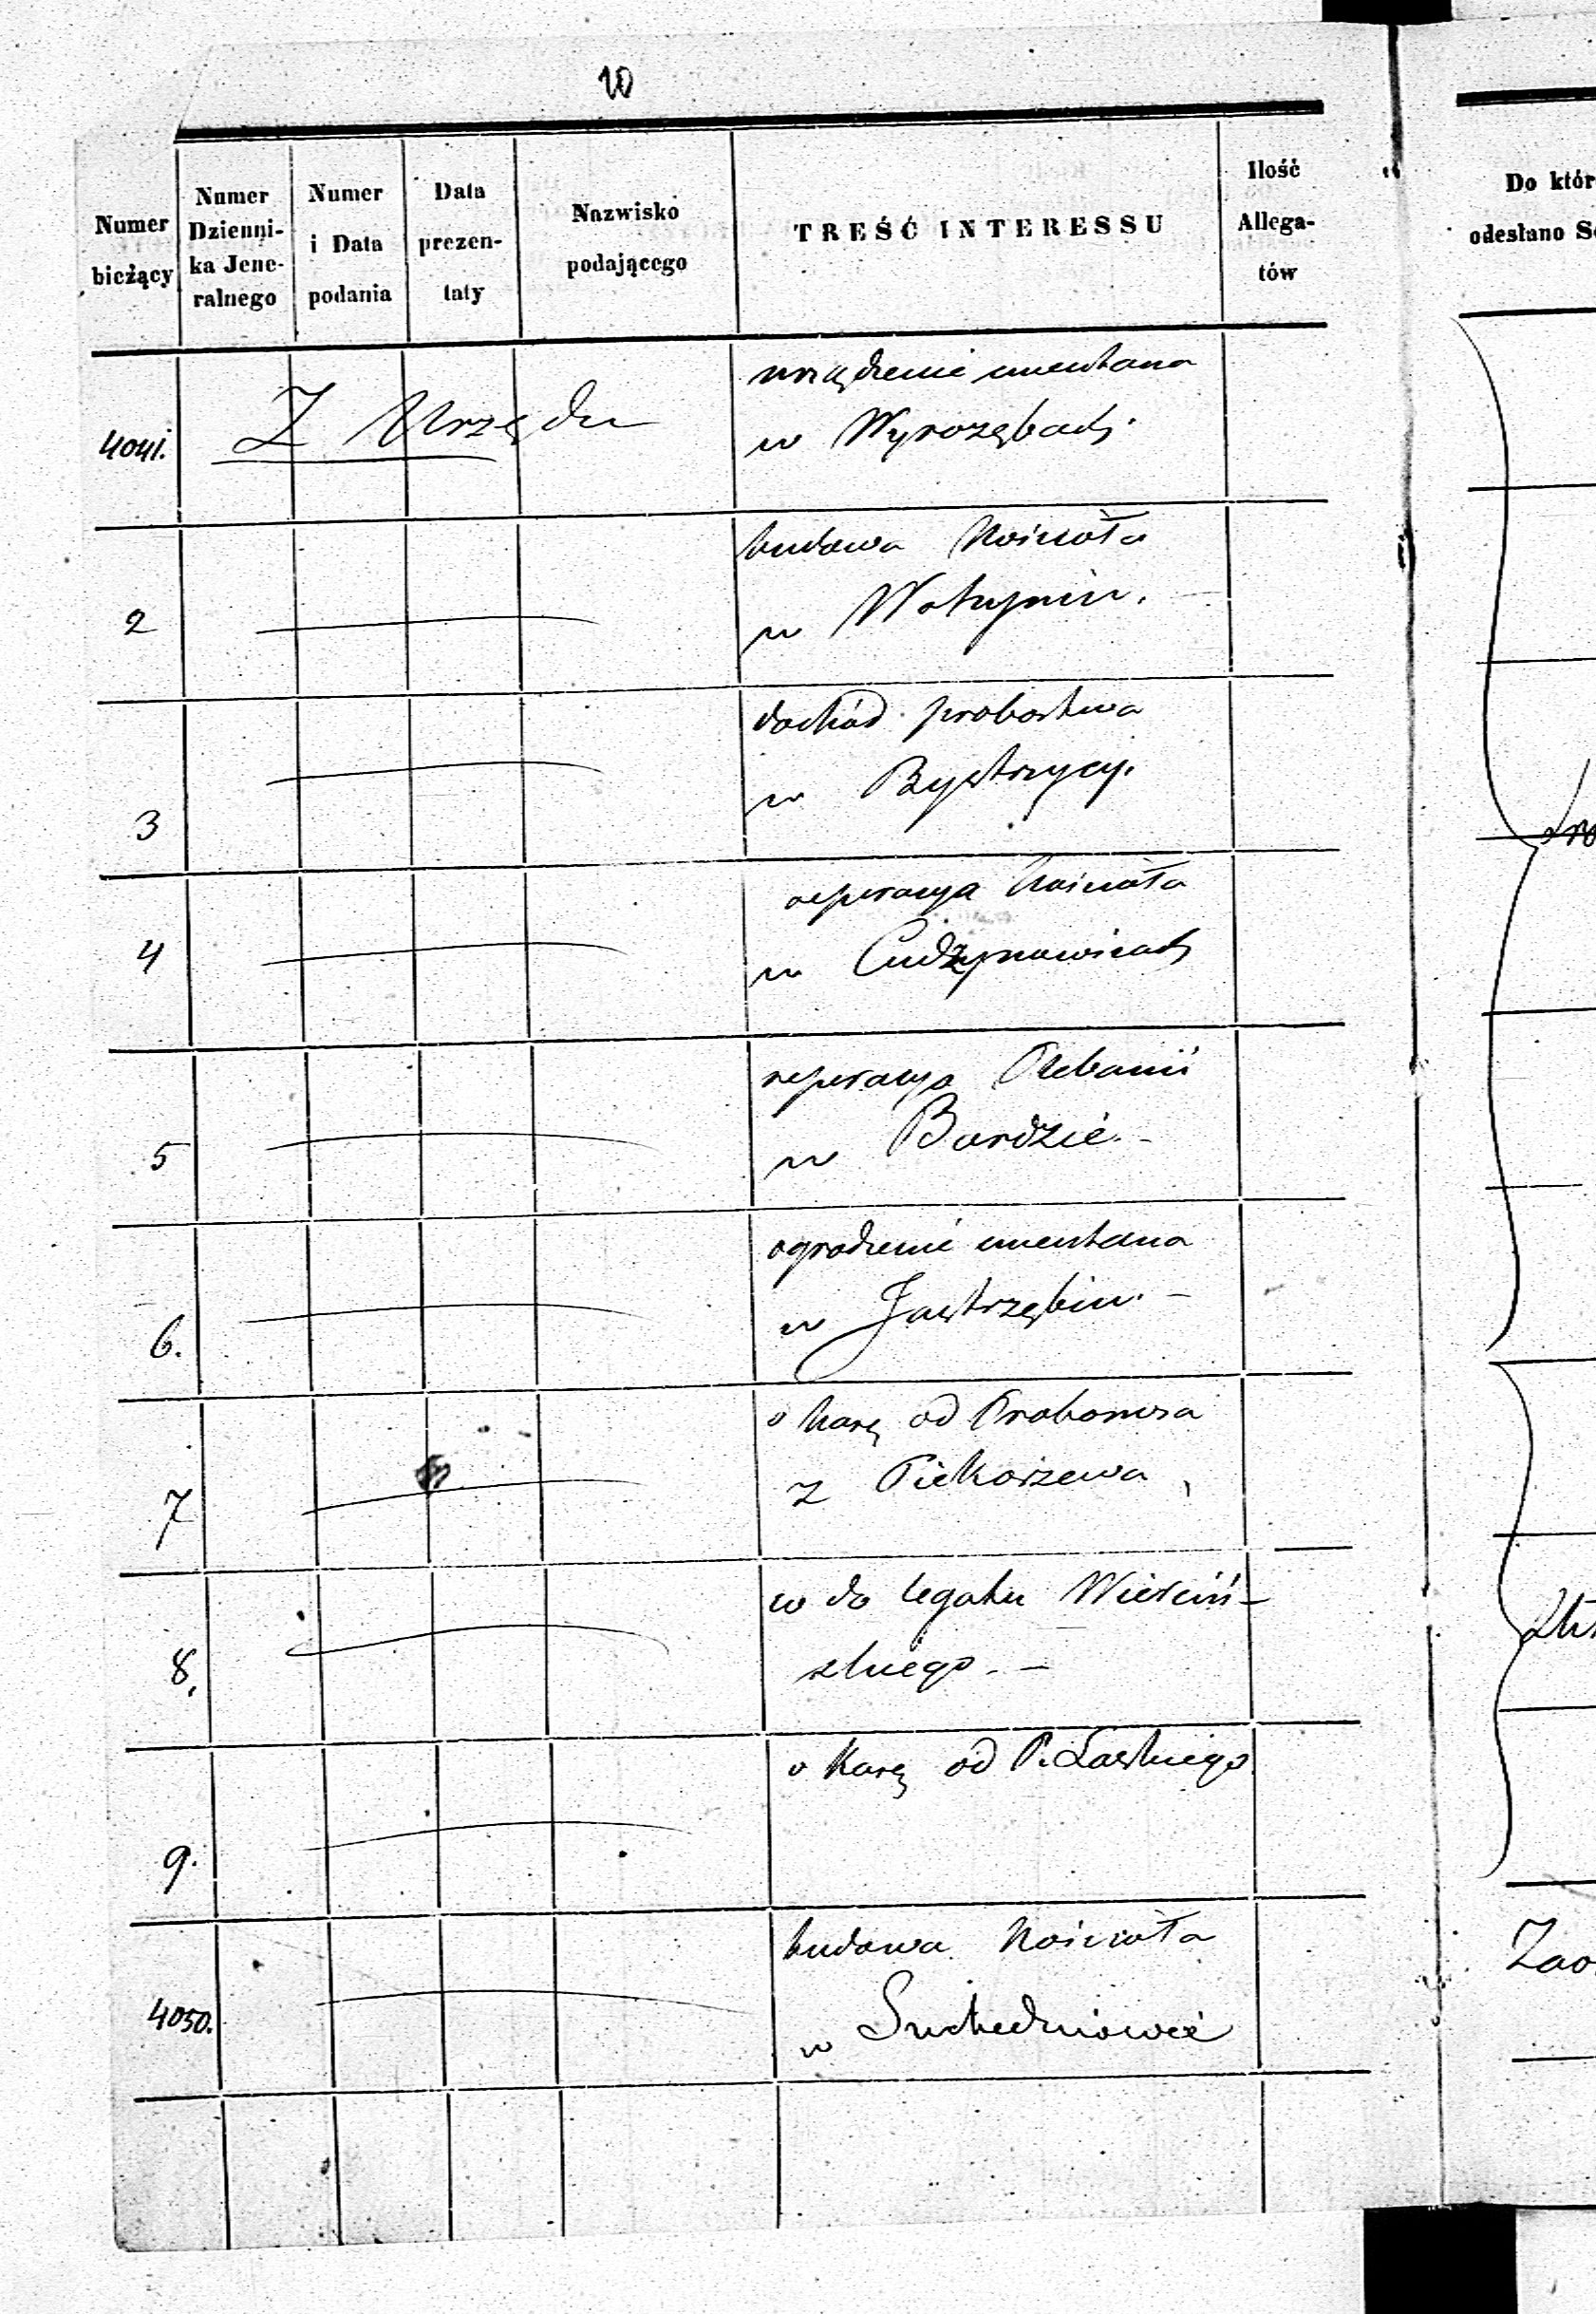 10
Numer bieżący
Numer Dzienni-ka Jene-ralnego
Numer i Data podania
Data prezen-taty
Nazwisko podającego
TREŚĆ INTERESSU
Ilość Allega-tów
Do któr
odesłano S
4041. Z Urzędu urządzenie cmentarza
w Wyrozębach.
2 budowa Kościoła
w Wołyniu.
3 dochód probostwa
w Bystrzycy.
4 reperacya Kościoła
w Cudzynowicach
5 reperacya Plebanii
w Bardzie.
6. ogrodzenie cmentarza
w Jastrzębiu.
7 o karę od Proboszcza
z Piekarzewa
8. co do legatu Wierciń-
skiego.
9. o karę od P. Łaskiego
4050. budowa Kościoła
w Suchedniowie
Zao